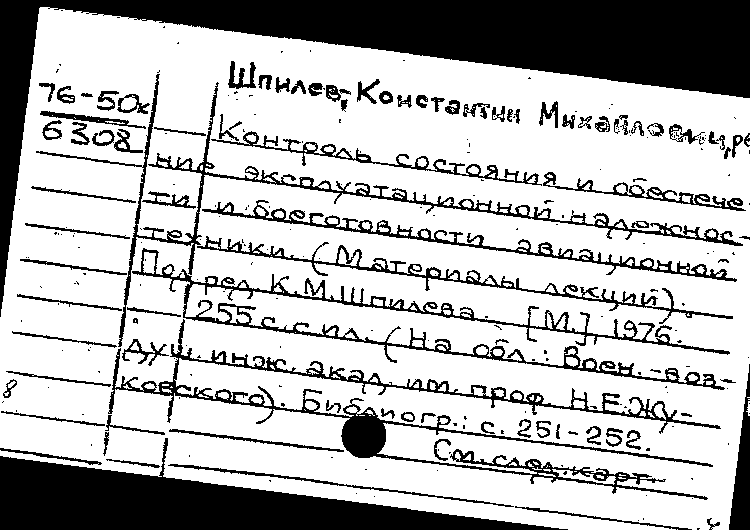 Шпилев, Константин Михайлович, ре
76-50к
6308
Контроль состояния и обеспече-
ние эксплуатационной надежнос-
ти и боеготовности авиационной
техники. (Материалы лекций).
Под ред. К.М.Шпилева. [М.], 1976.
255 с. с ил. (На обл.: Воен.-воз-
душ. инж. акад. им. проф. Н.Е.Жу-
ковского). Библиогр.: с. 251-252.
См. след. карт.
8